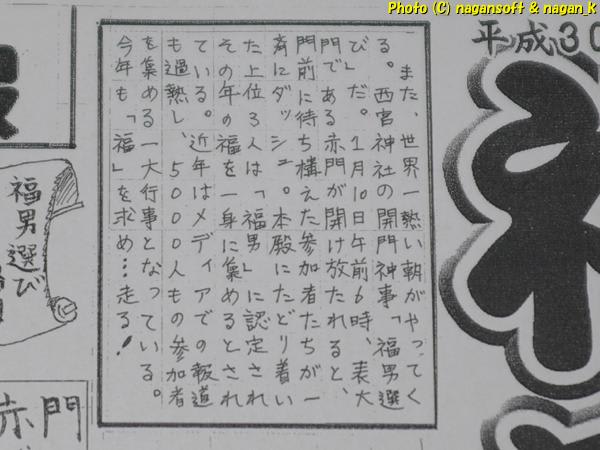 Photo (C) nagansoft & nagan_K
平成30
また、世界一熱い朝がやってく
る。西宮神社の開門神事「福男選
び」だ。1月10日午前6時、表大
門である赤門が開け放たれると、
門前に待ち構えた参加者たちが一
斉にダッシュ。本殿にたどり着い
た上位3人は「福男」に認定され
その年の福を一身に集めるとされ
ている。近年はメディアでの報道
も過熱し、5000人もの参加者
を集める一大行事となっている。
今年も「福」を求め…走る!
福男選び
赤門